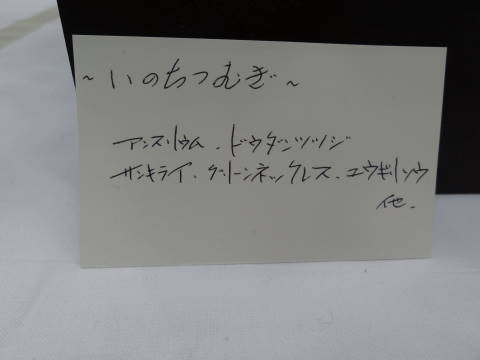 ~いのちつむぎ~
アンスリウム.ドウダンツツジ
サンキライ.グリーンネックレス.ユウギリソウ
他.